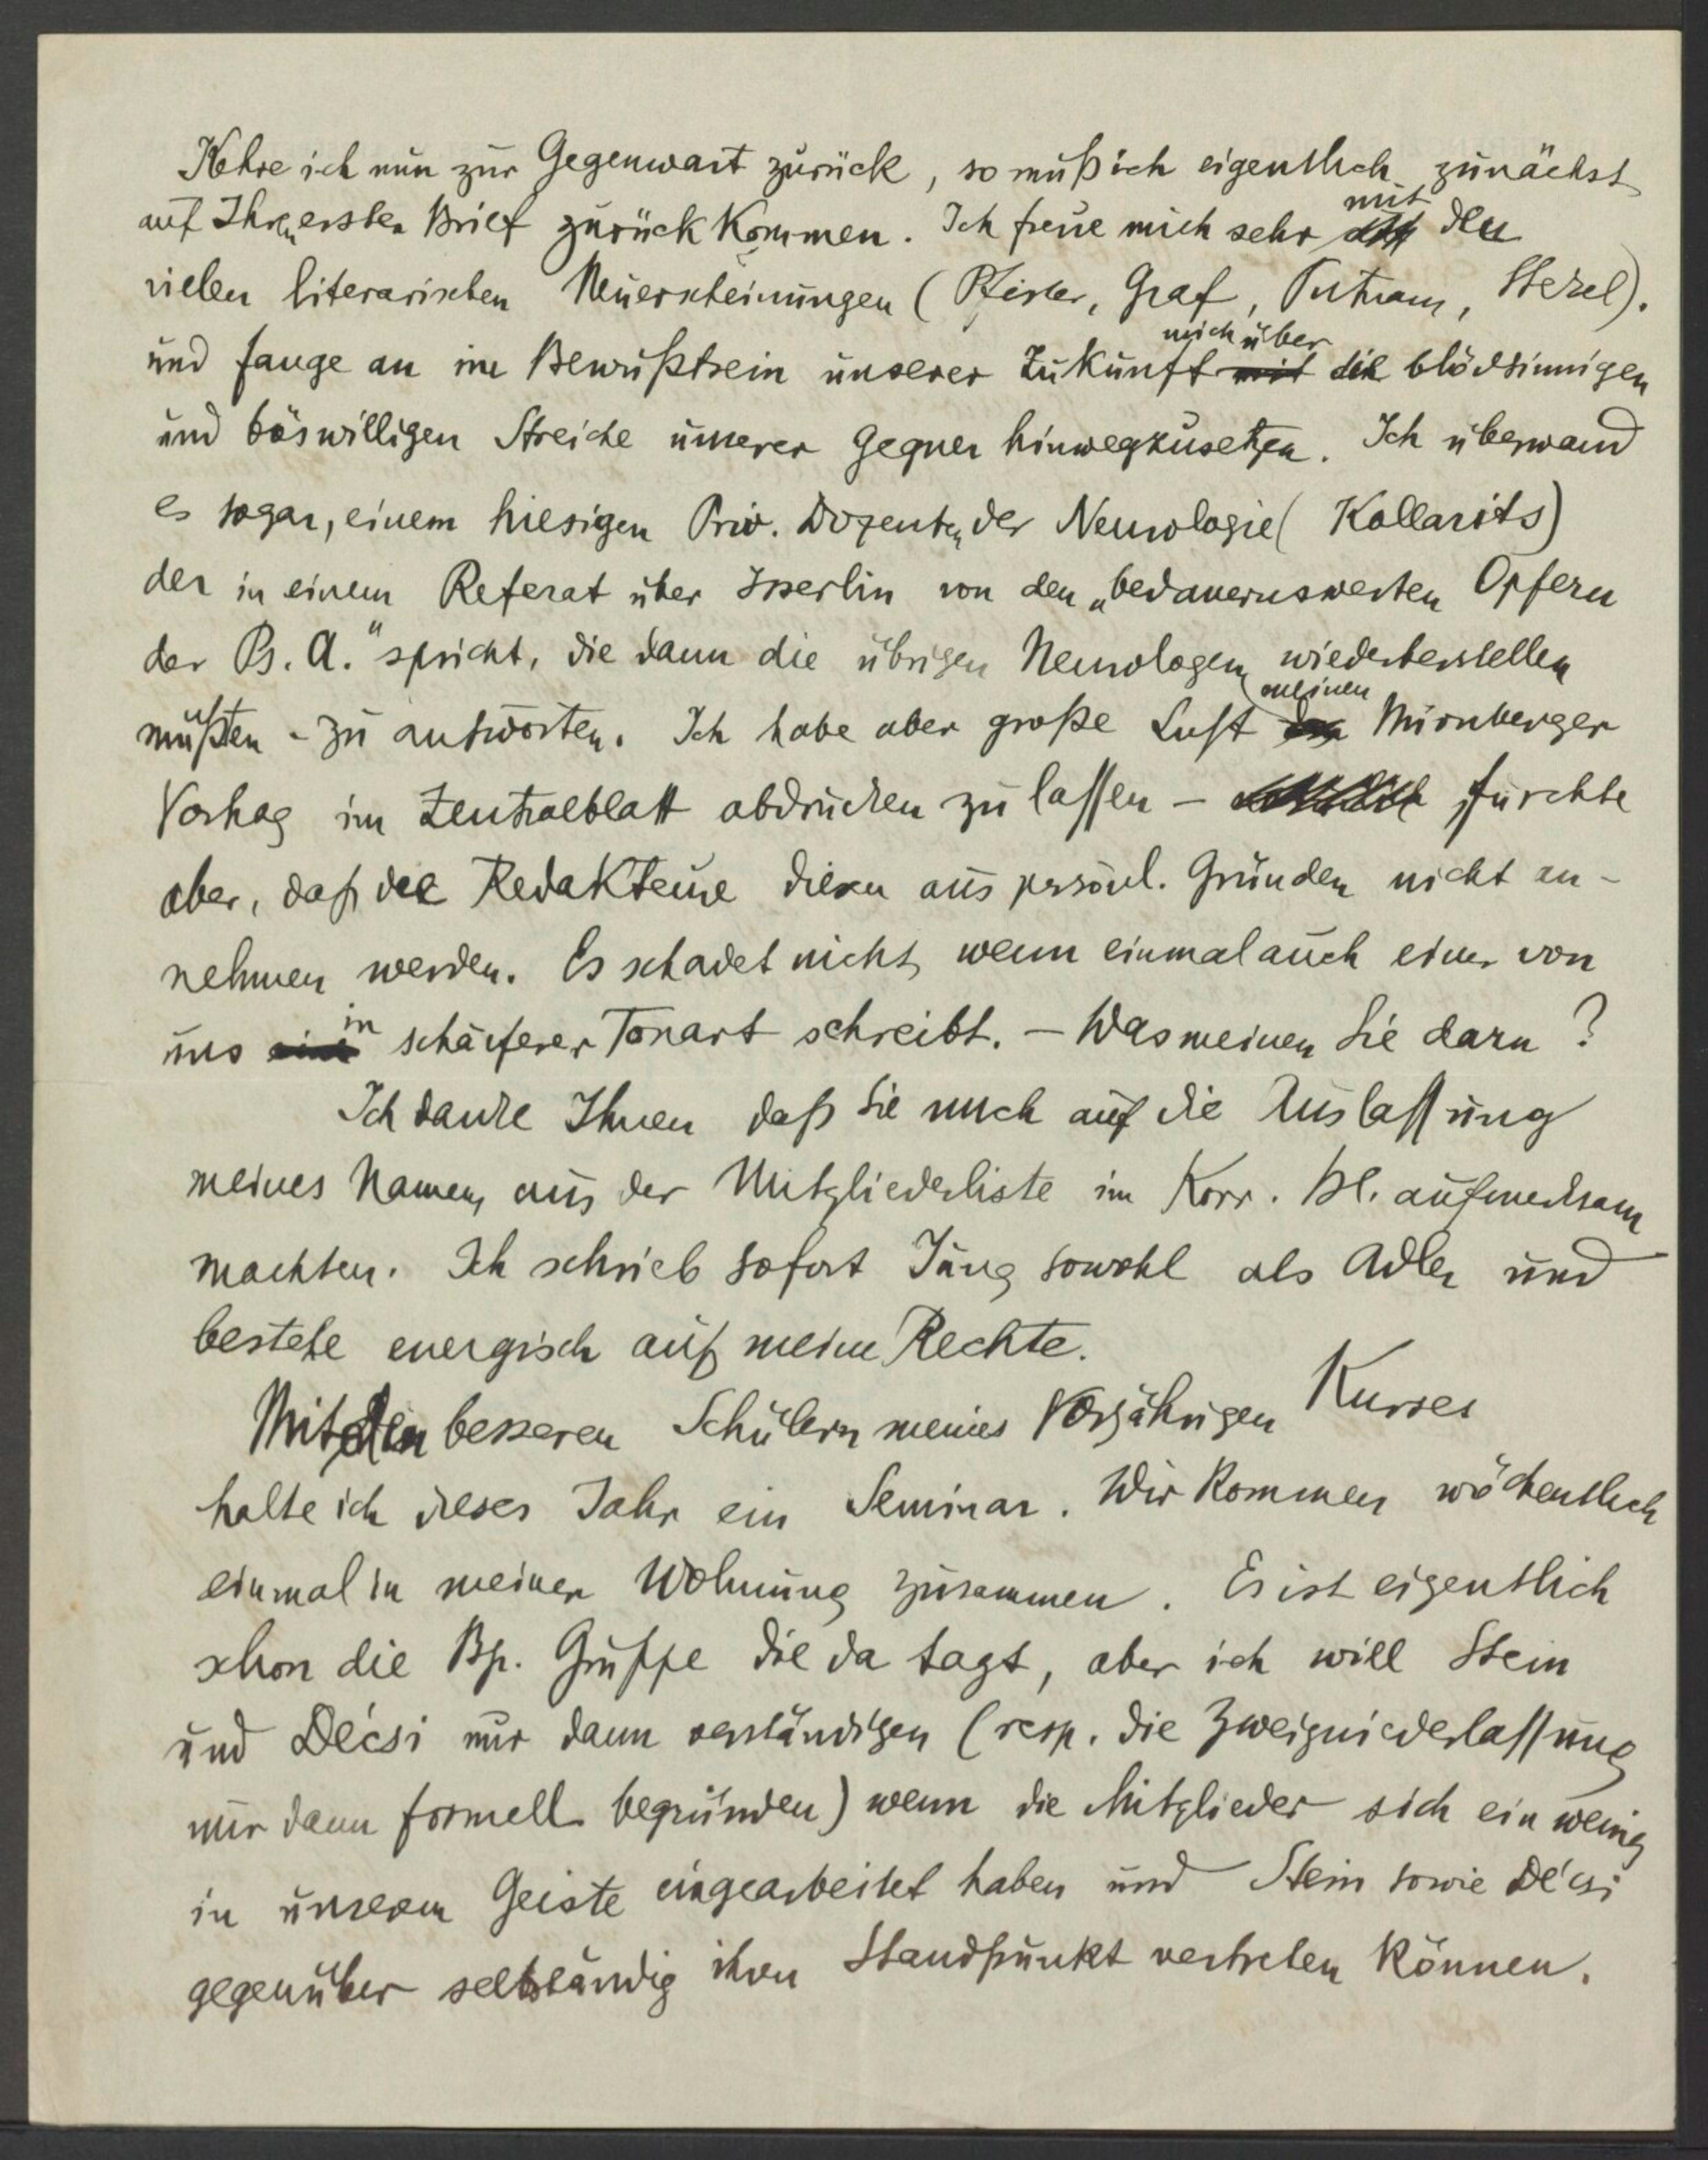 Kehre ich nun zur Gegenwart zurück, so muß ich eigentlich zunächst
auf Ihren ersten Brief zurück kommen. Ich freue mich sehr mit den
vielen literarischen Neuerscheinungen (Pfister, Graf, Putnam, Stekel).
und fange an im Bewußtsein unserer Zukunft mit mich über die blödsinnigen
und böswilligen Streiche unserer Gegner hinwegzusetzen. Ich überwand
es sogar, einem hiesigen Priv. Dozenten der Neurologie (Kollarits)
der in einem Referat über Isserlin von den „bedauernswerten Opfern
der Ps. A.“ spricht, die dann die übrigen Neurologen wiederherstellen
müßten - zu antworten. Ich habe aber große Lust meinen Nürnberger
Vortrag im Zentralblatt abdrucken zu lassen – fürchte
aber, daß die Redakteure diesen aus persönl. Gründen nicht an-
nehmen werden. Es schadet nicht, wenn einmal auch einer von
uns in schärferer Tonart schreibt. – Was meinen Sie dazu?
Ich danke Ihnen daß Sie mich auf die Auslassung
meines Namens aus der Mitgliederliste im Korr. Bl. aufmerksam
machten. Ich schrieb sofort Jung sowohl als Adler und
bestehe energisch auf meine Rechte.
Mit den besseren Schülern meines vorjährigen Kurses
halte ich dieses Jahr ein Seminar. Wir kommen wöchentlich
einmal in meiner Wohnung zusammen. Es ist eigentlich
schon die Bp. Gruppe die da tagt, aber ich will Stein
und Décsi nur dann verständigen (resp. die Zweigniederlassung
nur dann formell begründen) wenn die Mitglieder sich ein wenig
in unserem Geiste eingearbeitet haben und Stein sowie Décsi
gegenüber selbständig ihren Standpunkt vertreten können.